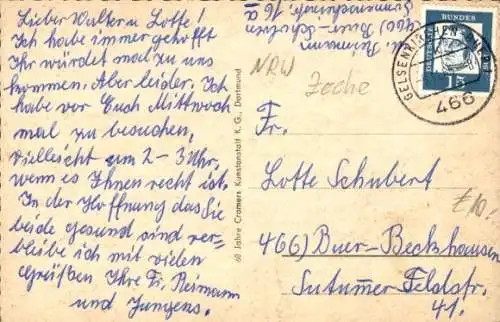 Lieber Walter u Lotte!
Ich habe immer gehofft
Ihr würdet mal zu uns
kommen. Aber leider. Ich
habe vor Euch Mittwoch
mal zu besuchen,
vielleicht um 2–3 Uhr,
wenn es Ihnen recht ist.
In der Hoffnung das Sie
beide gesund sind ver-
bleibe ich mit vielen
Grüßen Ihre Fr. Reimann
und Jungens.
60 Jahre Cramers Kunstanstalt K. G., Dortmund
Reimann
466) Buer-
16 a
DEUTSCHE BUNDESPOST
15
GELSENKIRCHEN-BUER
466
NRW
Zeche
Fr.
Lotte Schubert
466) Buer-Beckhausen
Sutumer Feldstr.
41.